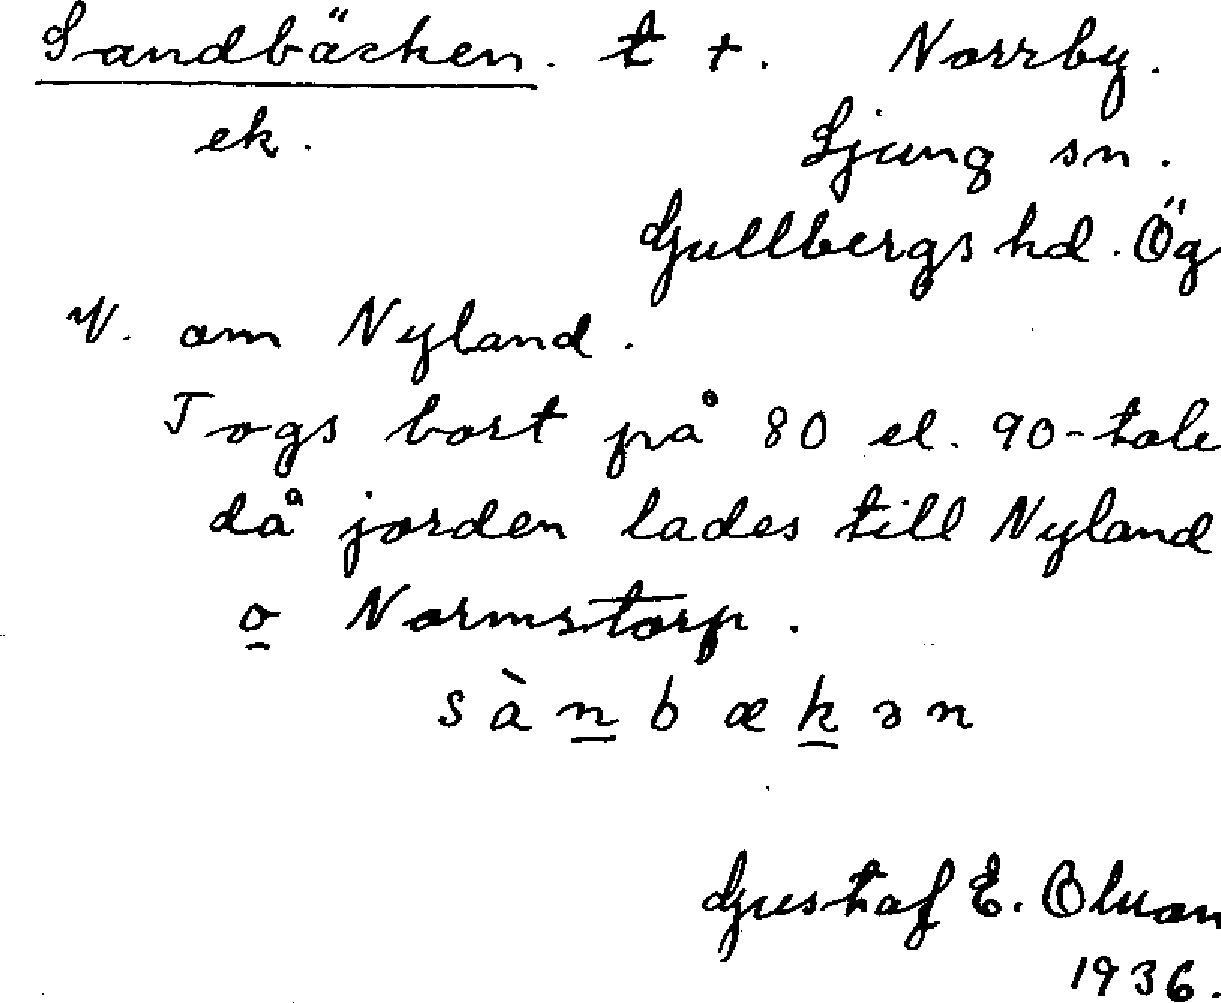 Sandbäcken. t +. Norrby.
ek. Ljung sn.
Gullbergs hd. Ög
V. om Nyland.
Togs bort på 80 el. 90-tale
då jorden lades till Nyland
o Normstorp.
sànbækən
Gustaf E. Olsson
1936.